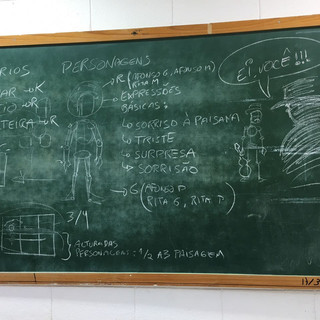 RIOS
AR → K
CIO → R
TEIRA → R
PERSONAGENS
R (AFONSO G, AFONSO M)
RITA M
EXPRESSÕES
BÁSICAS:
↳ SORRISO À PAISANA
↳ TRISTE
↳ SURPRESA
↳ SORRISÃO
G (AFONSO P
RITA G, RITA T.)
3/4
DAS
PERSONAGENS: 1/2 A3 PAISAGEM
EI, VOCÊ!!!